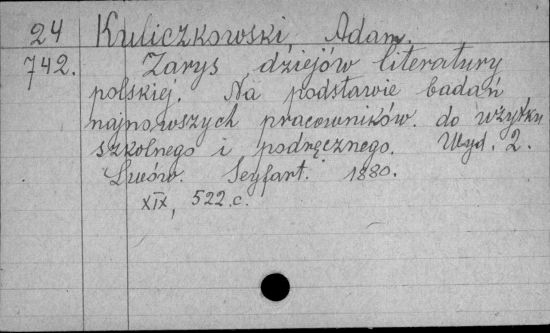 24 Kuliczkowski, Adam.
742. Zarys dziejów literatury
polskiej. Na podstawie badań
najnowszych pracowników. do użytku
szkolnego i podręcznego. Wyd. 2.
Lwów. Seyfart. 1880.
XIX, 522.c.